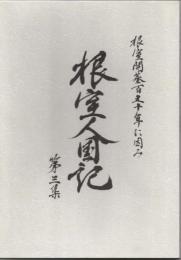 根室開基百五十年に因み
根室人国記
第三集